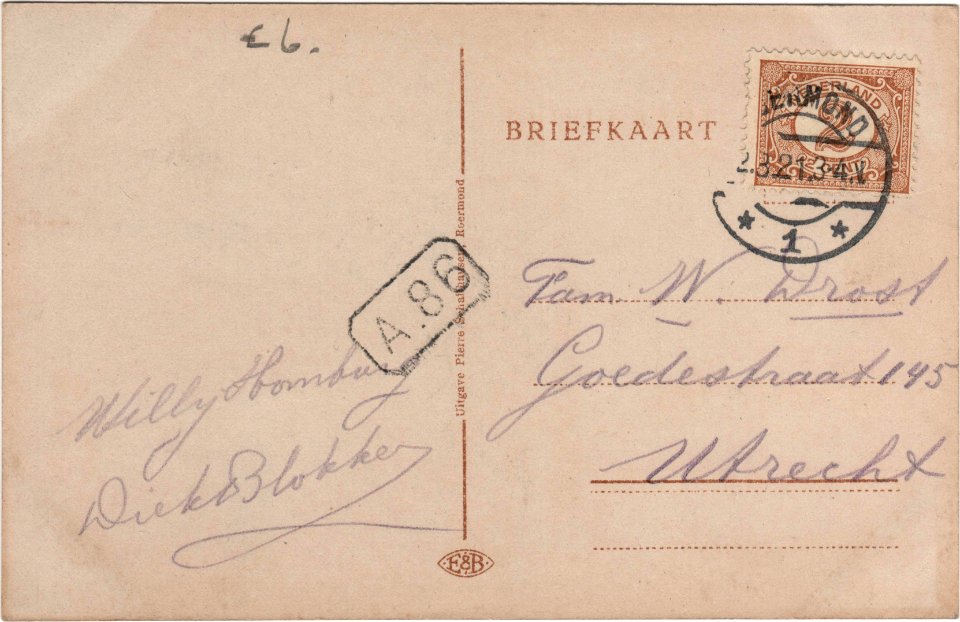 £6.
BRIEFKAART
NEDERLAND
2
CENT
ERMOND
2.3.21.3-4.V
* 1 *
A.86
Uitgave Pierre Schafthausen, Roermond
Fam. W. Drost
Goedestraat 145
Utrecht
Willy Homburg
Dick Blokker
E&B